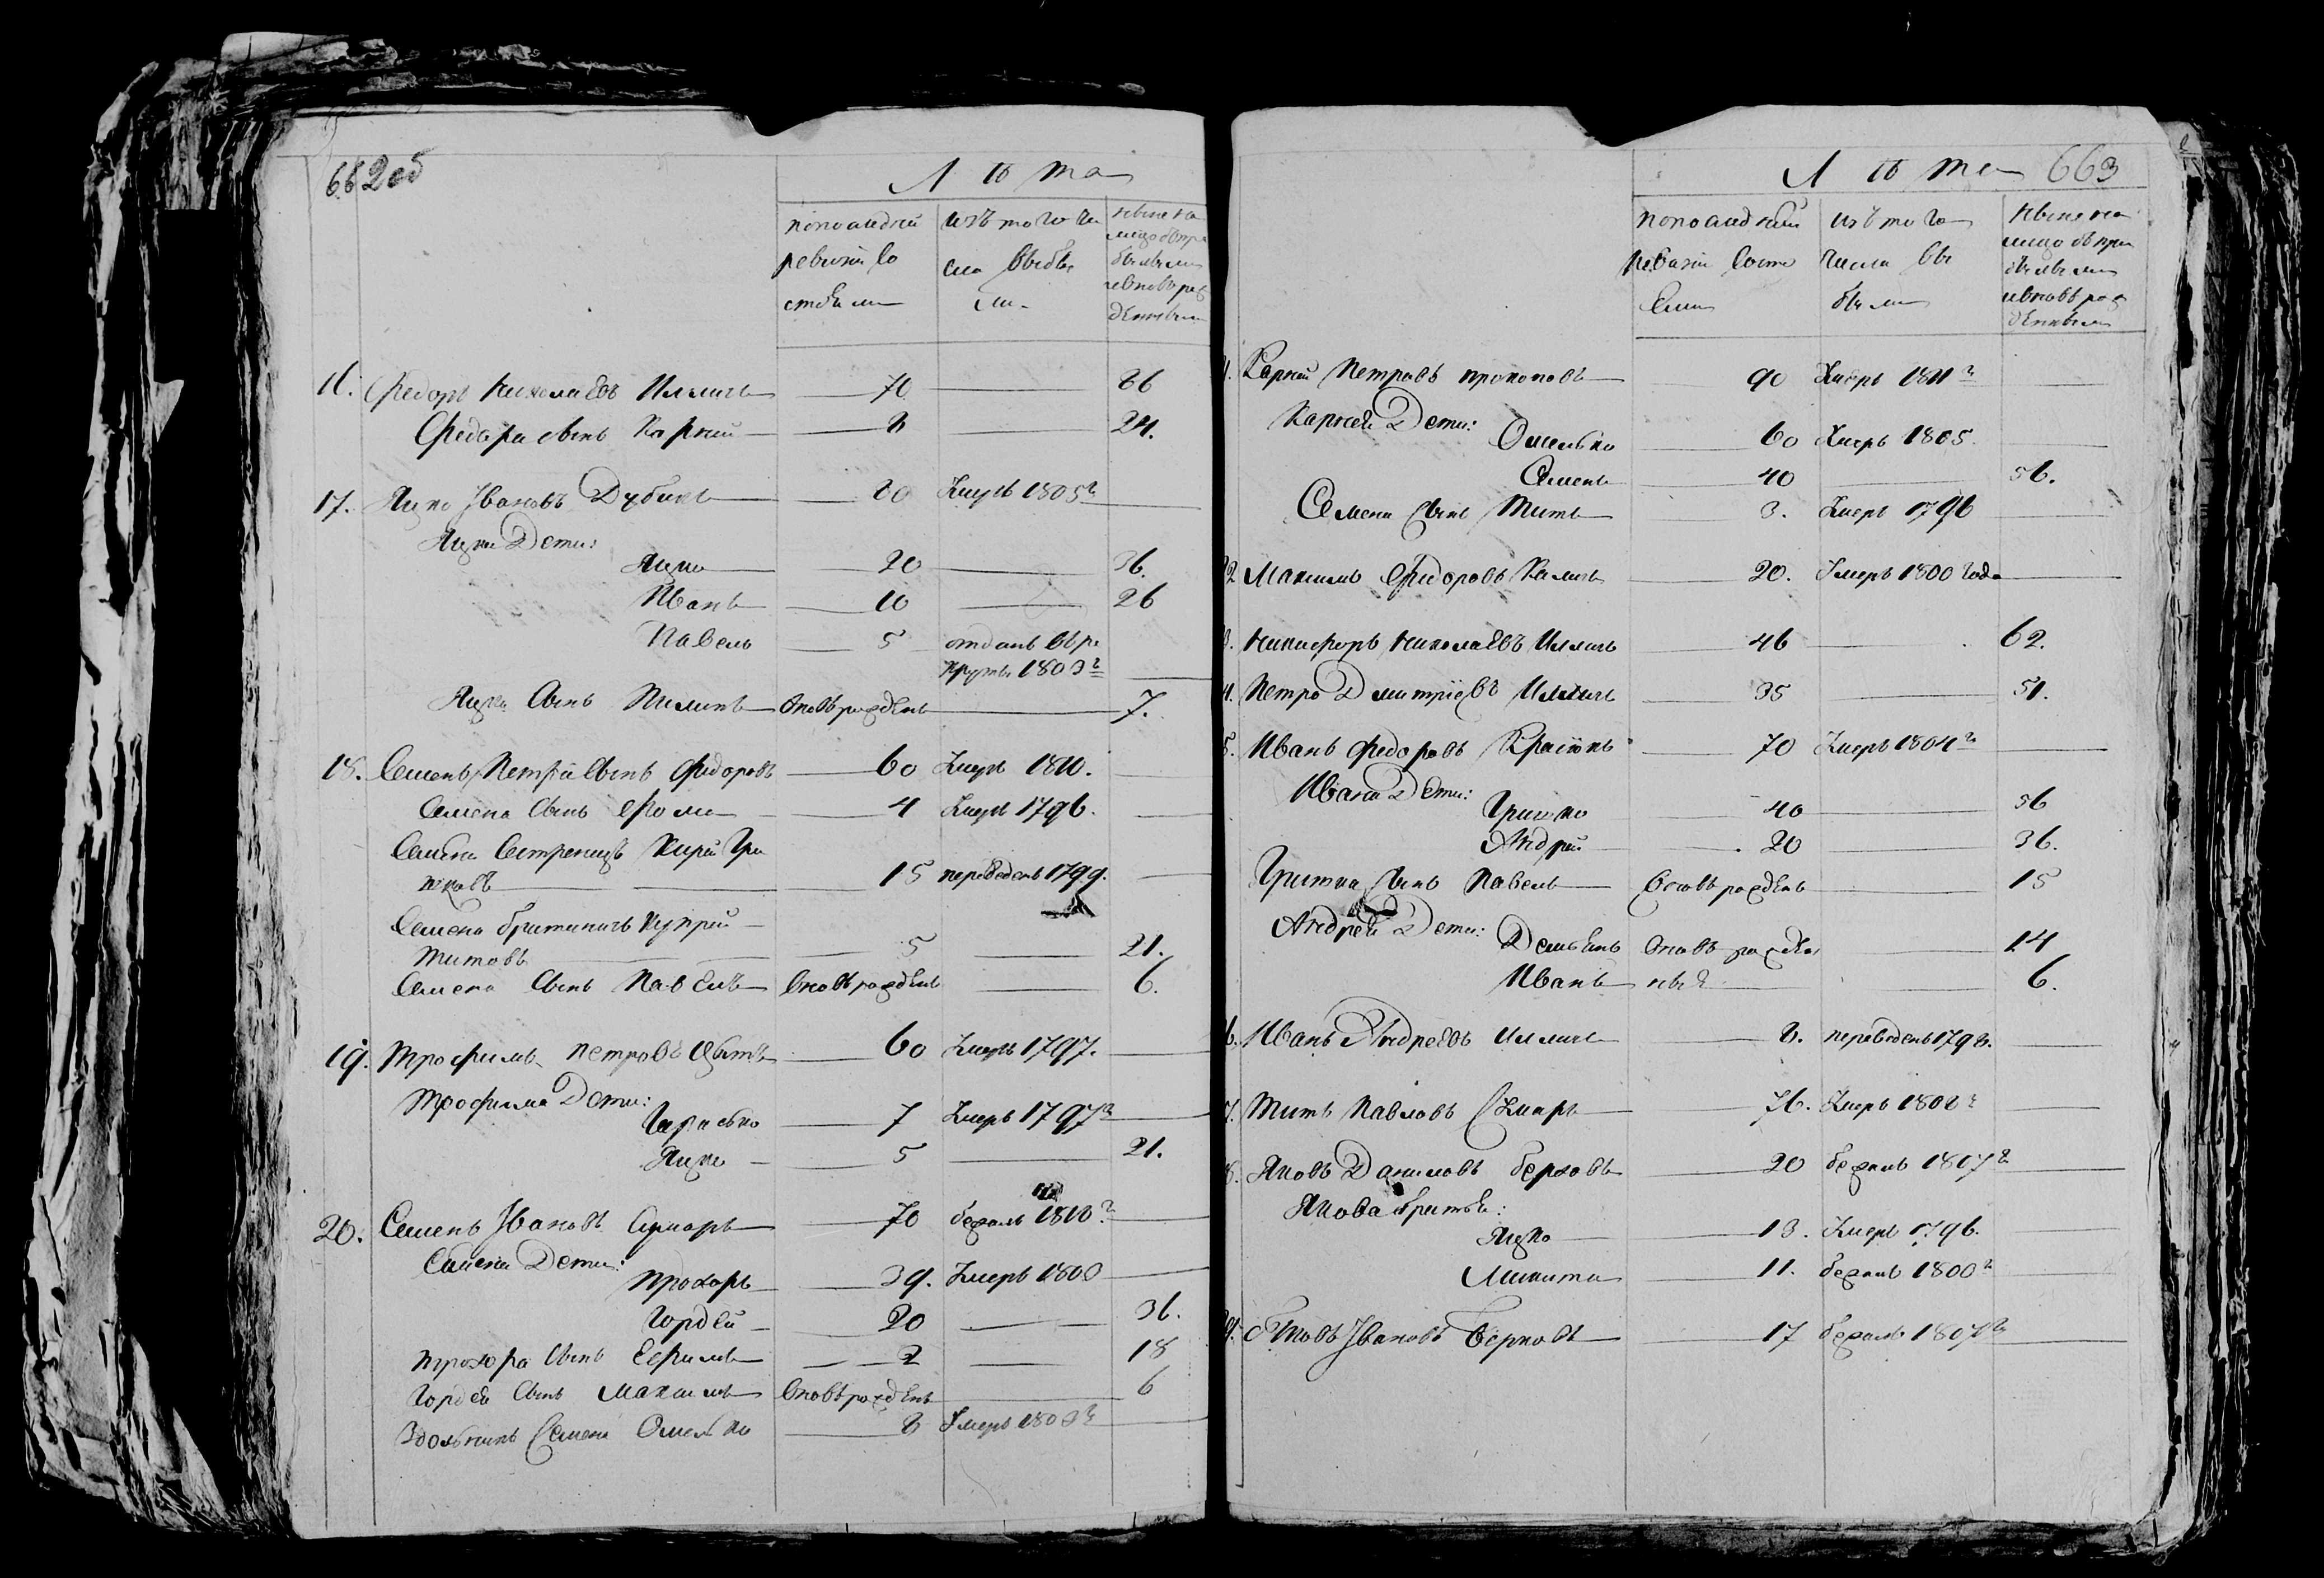 662об
Лѣта
по последней ревизіи состояли
изъ того числа выбыли
ныне на лицо съ прибылыми и вновь рожденными
16. Федоръ Николаевъ Илличь 70 86
Федора сынъ Карний 8 24.
17. Яцко Ивановъ Дубикъ 80 Умеръ 1805г
Яцка Дети:
Яцко 20 36.
Иванъ 10 26
Павелъ 5 отданъ въ рекруты 1803г
Яцка сынъ Пилипъ вновь рожденъ 7.
18. Семенъ Петрôв сынъ Федоровъ 60 Умеръ 1810.
Семена сынъ Фома 4 Умеръ 1796.
Семена Сестренецъ Кирей Грицковъ 15 переведенъ 1799.
Семена братаничъ Купрей
Титовъ 5 21.
Семена сынъ Павелъ вновь рожденъ 6.
19. Трофимъ Петровъ 60 Умеръ 1797.
Трофима Дети:
Гарасько 7 Умеръ 1797г
Яцко 5 21.
20. Семенъ Ивановъ 70 бежалъ 1810г
Семена Дети:
Прохоръ 39. Умеръ 1800
Гордей 20 36.
Прохора сынъ Ефимъ 2 18
Гордея сынъ Максимъ вновь рожденъ 6
Семена Омелько 8 Умеръ 1803г
Лѣта 663
по последней ревизіи состояли
изъ того числа выбыли
ныне на лицо съ прибылыми и вновь рожденными
1. Карней Петровъ Прокоповъ 90 Умеръ 1811г
Карнея Дети:
Омелько 60 Умеръ 1805.
Семенъ 40 56.
Семена сынъ Титъ 3. Умеръ 1796
2. Максимъ Федоровъ 20. Умеръ 1800 года
3. Никифоръ Николаевъ Илличь 46 62.
4. Петро Дмитріевъ Илличь 35 51.
5. Иванъ Федоровъ 70 Умеръ 1804г
Ивана Дети:
Гришко 40 56
Андрей 20 36.
Гришка сынъ Павелъ вновь рожденъ 15
Андрея Дети:
Демьянъ вновь рожден 14
Иванъ ные 6.
6. Иванъ Андреевъ Илличь 8. переведенъ 1798.
7. Титъ Павловъ 76. Умеръ 1808г
8. Яковъ Даниловъ Берковъ 20 бежалъ 1807г
Якова братья:
Яцко 13. Умеръ 1796.
Микита 11. бежалъ 1800г
Ивановъ Берковъ 17 бежалъ 1807г